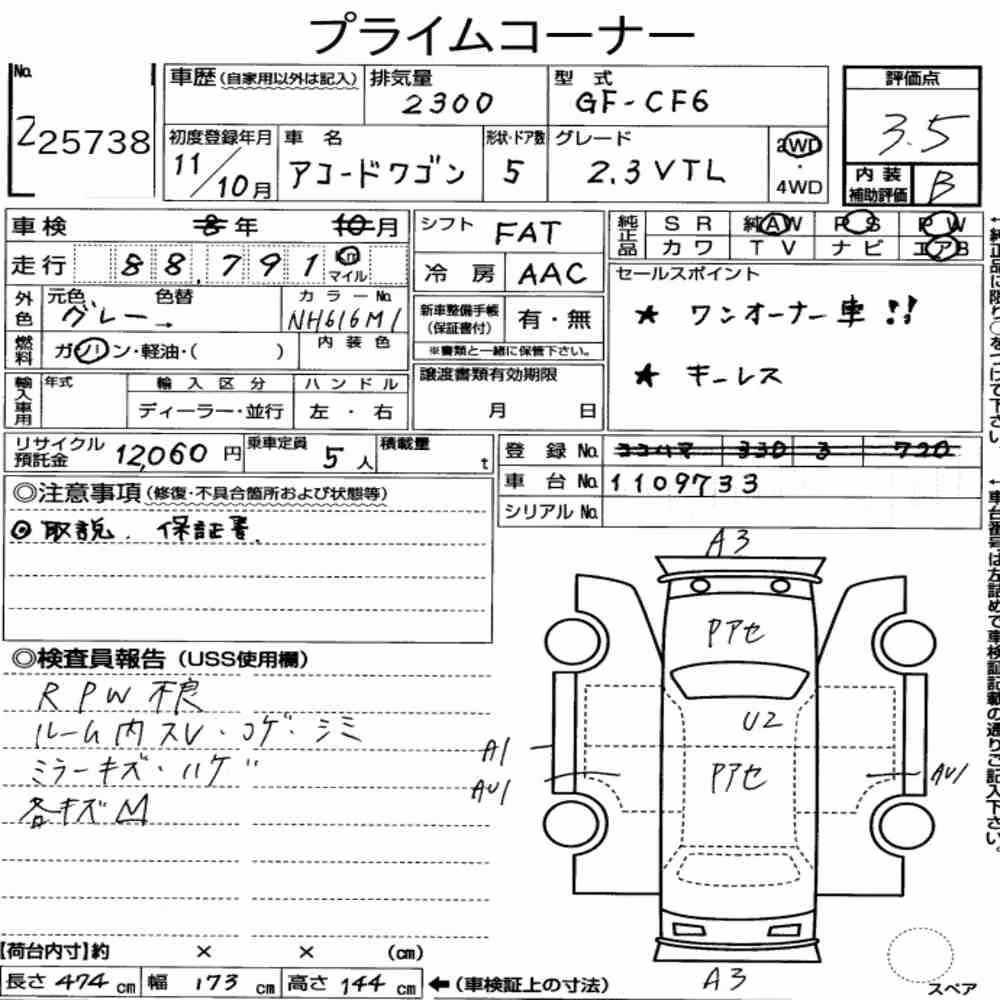 プライムコーナー
No. 225738
車歴(自家用以外は記入) 排気量 2300 型式 GF-CF6
初度登録年月 11/10月 車名 アコードワゴン 形状・ドア数 5 グレード 2.3VTL 2WD・4WD
評価点 3.5
内装補助評価 B
車検 8年 10月
走行 88,791 Km マイル
シフト FAT
冷房 AAC
純正品 SR 純AW PS PW
カワ TV ナビ エアB
外色 元色 グレー→ 色替 カラーNo. NH616M1
燃料 ガソリン・軽油・( ) 内装色
新車整備手帳(保証書付) 有・無
※書類と一緒に保管下さい。
セールスポイント
★ ワンオーナー車!!
★ キーレス
輸入車用 年式 輸入区分 ハンドル
ディーラー・並行 左・右
譲渡書類有効期限
月 日
リサイクル預託金 12,060円 乗車定員 5人 積載量 t
登録No. ヨコハマ 330 3 720
車台No. 1109733
シリアルNo.
◎注意事項(修復・不具合箇所および状態等)
◎取説.保証書.
◎検査員報告(USS使用欄)
RPW不良
ルーム内スレ・コゲ・シミ
ミラーキズ・ハゲ
各キズM
A3
Pアセ
U2
A1
Pアセ
AU1
AU1
A3
スペア
【荷台内寸】約 × × (cm)
長さ 474cm 幅 173cm 高さ 144cm ←(車検証上の寸法)
←純正品に限り○をつけて下さい。
←車台番号は左詰めで車検証記載の通りご記入下さい。